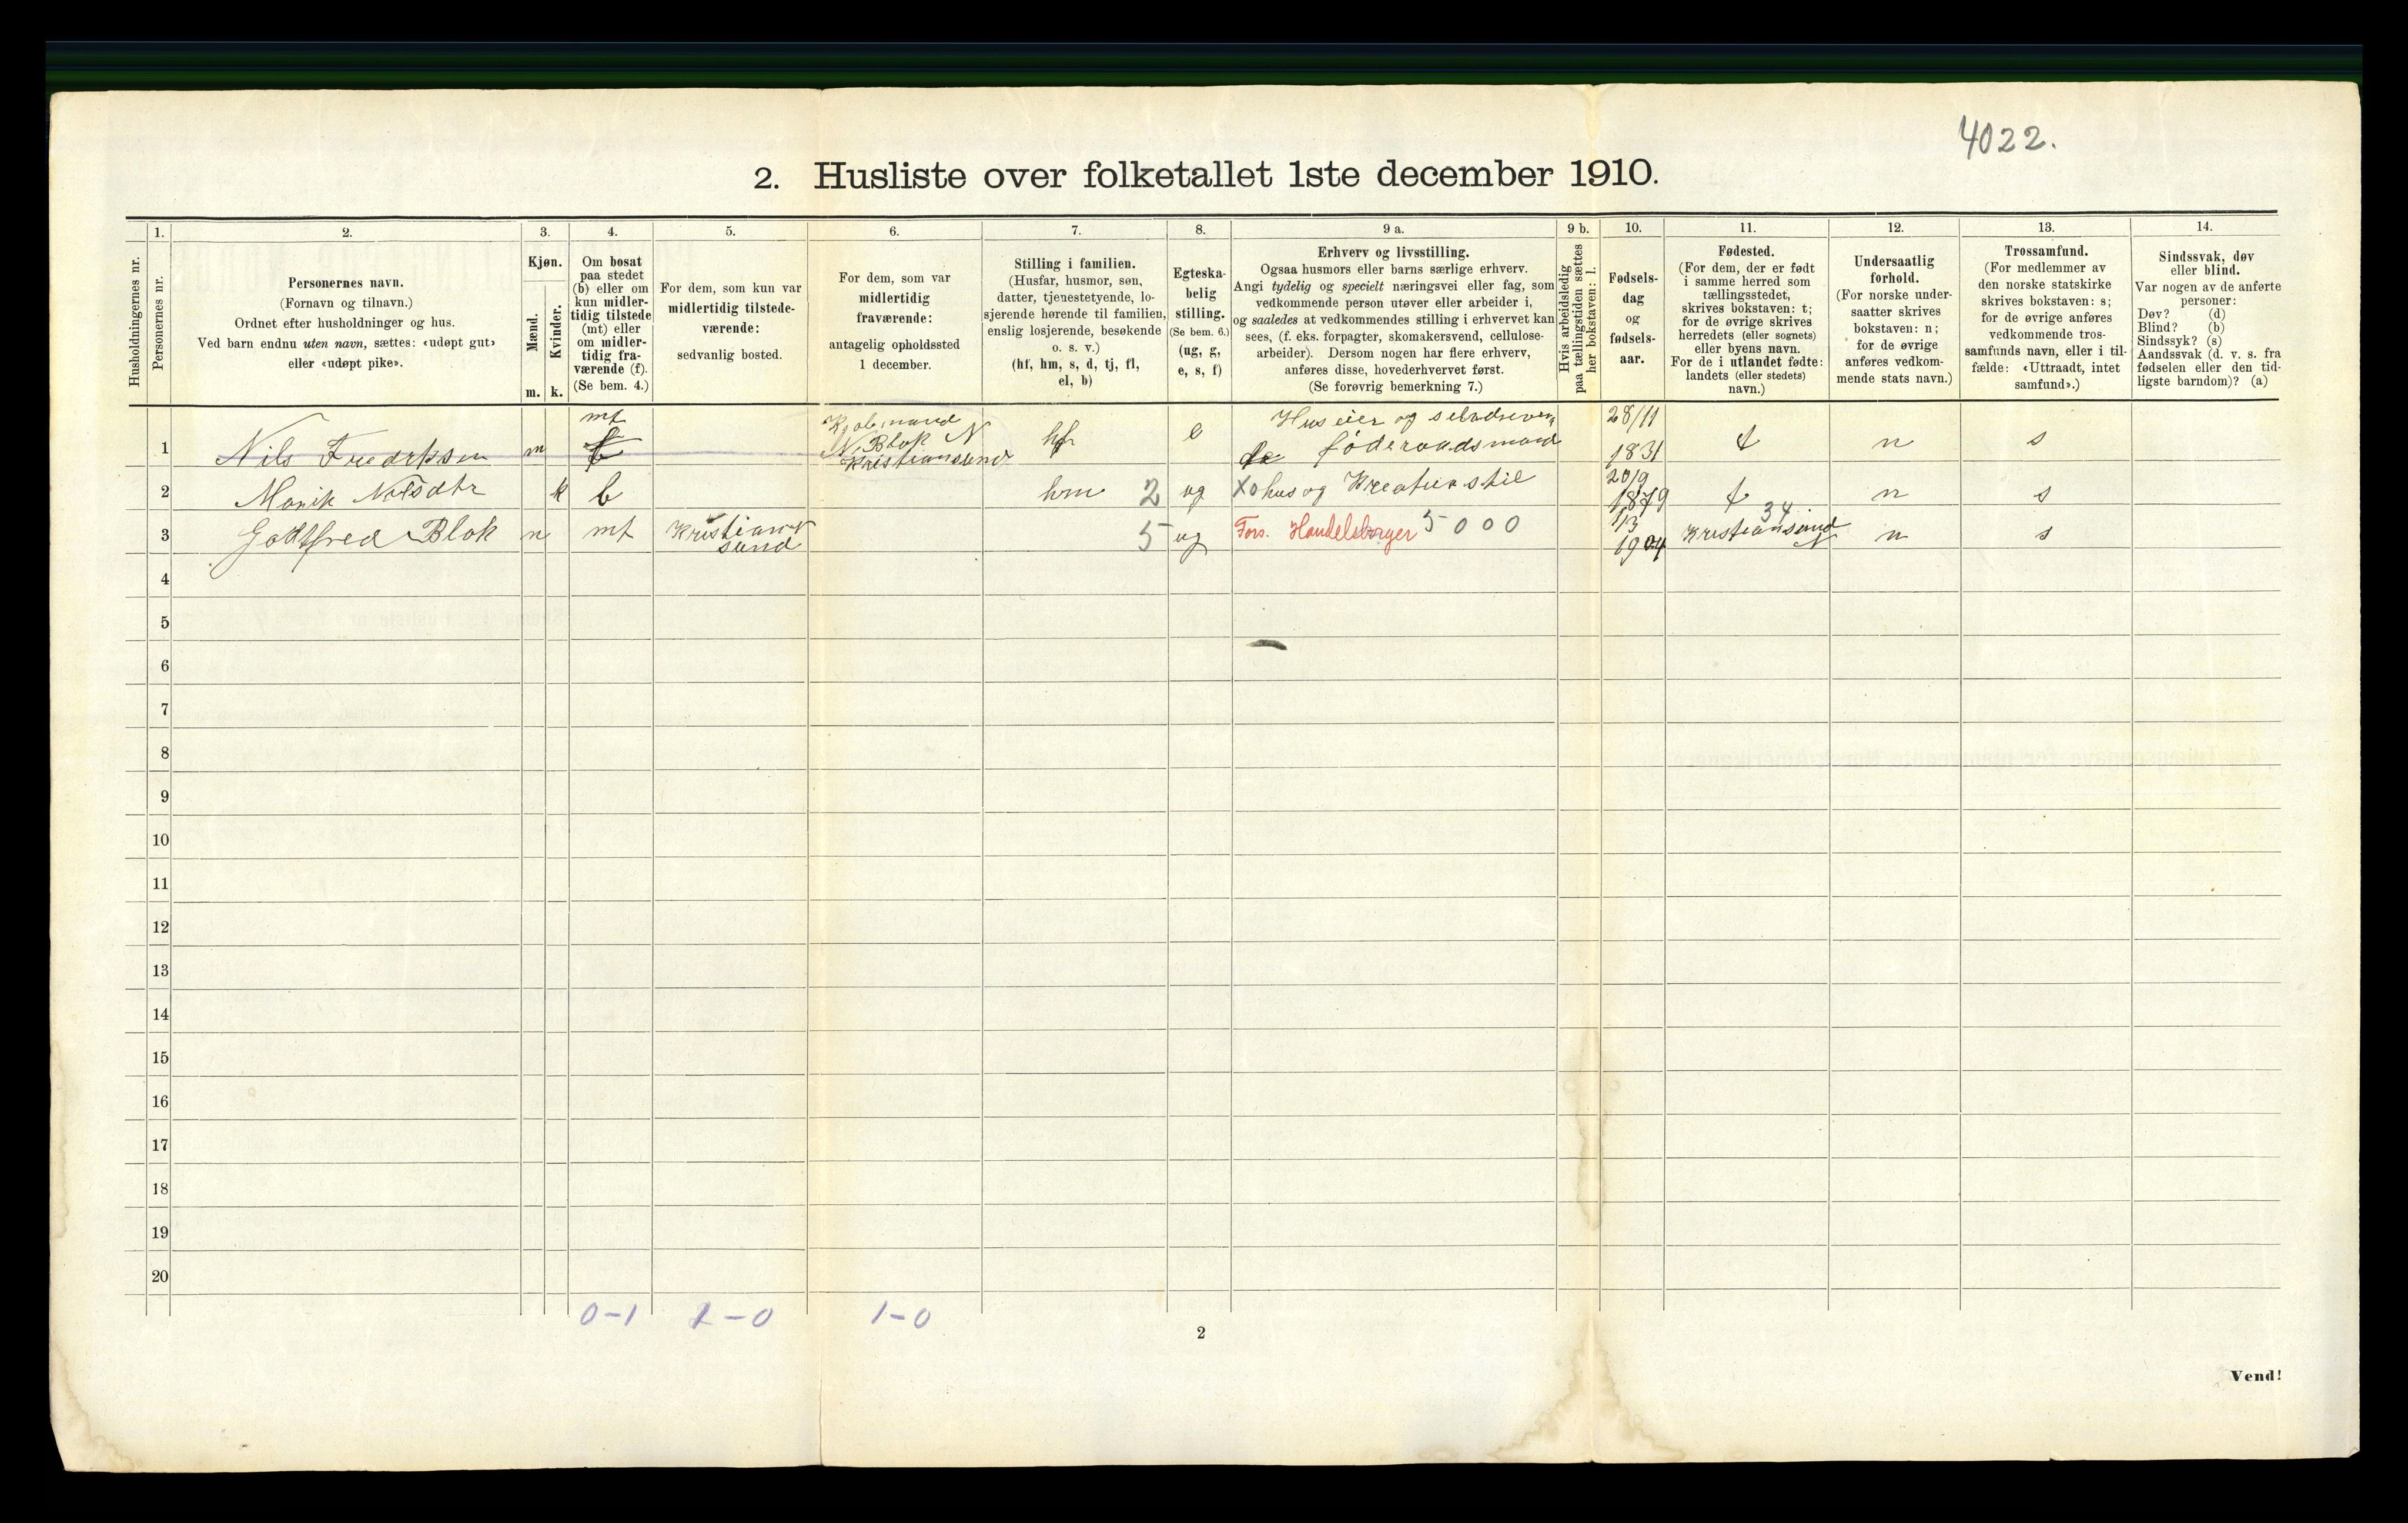 4022.
2. Husliste over folketallet 1ste december 1910.
Husholdningernes nr.
1.
Personernes nr.
2.
Personernes navn.
(Fornavn og tilnavn.)
Ordnet efter husholdninger og hus.
Ved barn endnu uten navn, sættes: «udøpt gut»
eller «udøpt pike».
3.
Kjøn.
Mænd.
Kvinder.
m. k.
4.
Om bosat
paa stedet
(b) eller om
kun midler-
tidig tilstede
(mt) eller
om midler-
tidig fra-
værende (f).
(Se bem. 4.)
5.
For dem, som kun var
midlertidig tilstede-
værende:
sedvanlig bosted.
6.
For dem, som var
midlertidig
fraværende:
antagelig opholdssted
1 december.
7.
Stilling i familien.
(Husfar, husmor, søn,
datter, tjenestetyende, lo-
sjerende hørende til familien,
enslig losjerende, besøkende
o. s. v.)
(hf, hm, s, d, tj, fl,
el, b)
8.
Egteska-
belig
stilling.
(Se bem. 6.)
(ug, g,
e, s, f)
9 a.
Erhverv og livsstilling.
Ogsaa husmors eller barns særlige erhverv.
Angi tydelig og specielt næringsvei eller fag, som
vedkommende person utøver eller arbeider i,
og saaledes at vedkommendes stilling i erhvervet kan
sees, (f. eks. forpagter, skomakersvend, cellulose-
arbeider). Dersom nogen har flere erhverv,
anføres disse, hovederhvervet først.
(Se forøvrig bemerkning 7.)
9 b.
Hvis arbeidsledig
paa tællingstiden sættes
her bokstaven: l.
10.
Fødsels-
dag
og
fødsels-
aar.
11.
Fødested.
(For dem, der er født
i samme herred som
tællingsstedet,
skrives bokstaven: t;
for de øvrige skrives
herredets (eller sognets)
eller byens navn.
For de i utlandet fødte:
landets (eller stedets)
navn.)
12.
Undersaatlig
forhold.
(For norske under-
saatter skrives
bokstaven: n;
for de øvrige
anføres vedkom-
mende stats navn.)
13.
Trossamfund.
(For medlemmer av
den norske statskirke
skrives bokstaven: s;
for de øvrige anføres
vedkommende tros-
samfunds navn, eller i til-
fælde: «Uttraadt, intet
samfund».)
14.
Sindssvak, døv
eller blind.
Var nogen av de anførte
personer:
Døv? (d)
Blind? (b)
Sindssyk? (s)
Aandssvak (d. v. s. fra
fødselen eller den tid-
ligste barndom)? (a)
1 Nils Fredrksen m mt N. Blok N Kristiansund hf e Huseier og føderaadsmand 28/11 1831 t n s
2 k b hm 2 ug X0 hus og Kreaturstil 20/9 1879 t n s
3 Gottfred Blok m mt Kristian N sund 5 ug Fors. Handelsborger 5000 1/3 1904 34 Kristiansund N n s
4
5
6
7
8
9
10
11
12
13
14
15
16
17
18
19
20
0-1 1-0 1-0
2
Vend!